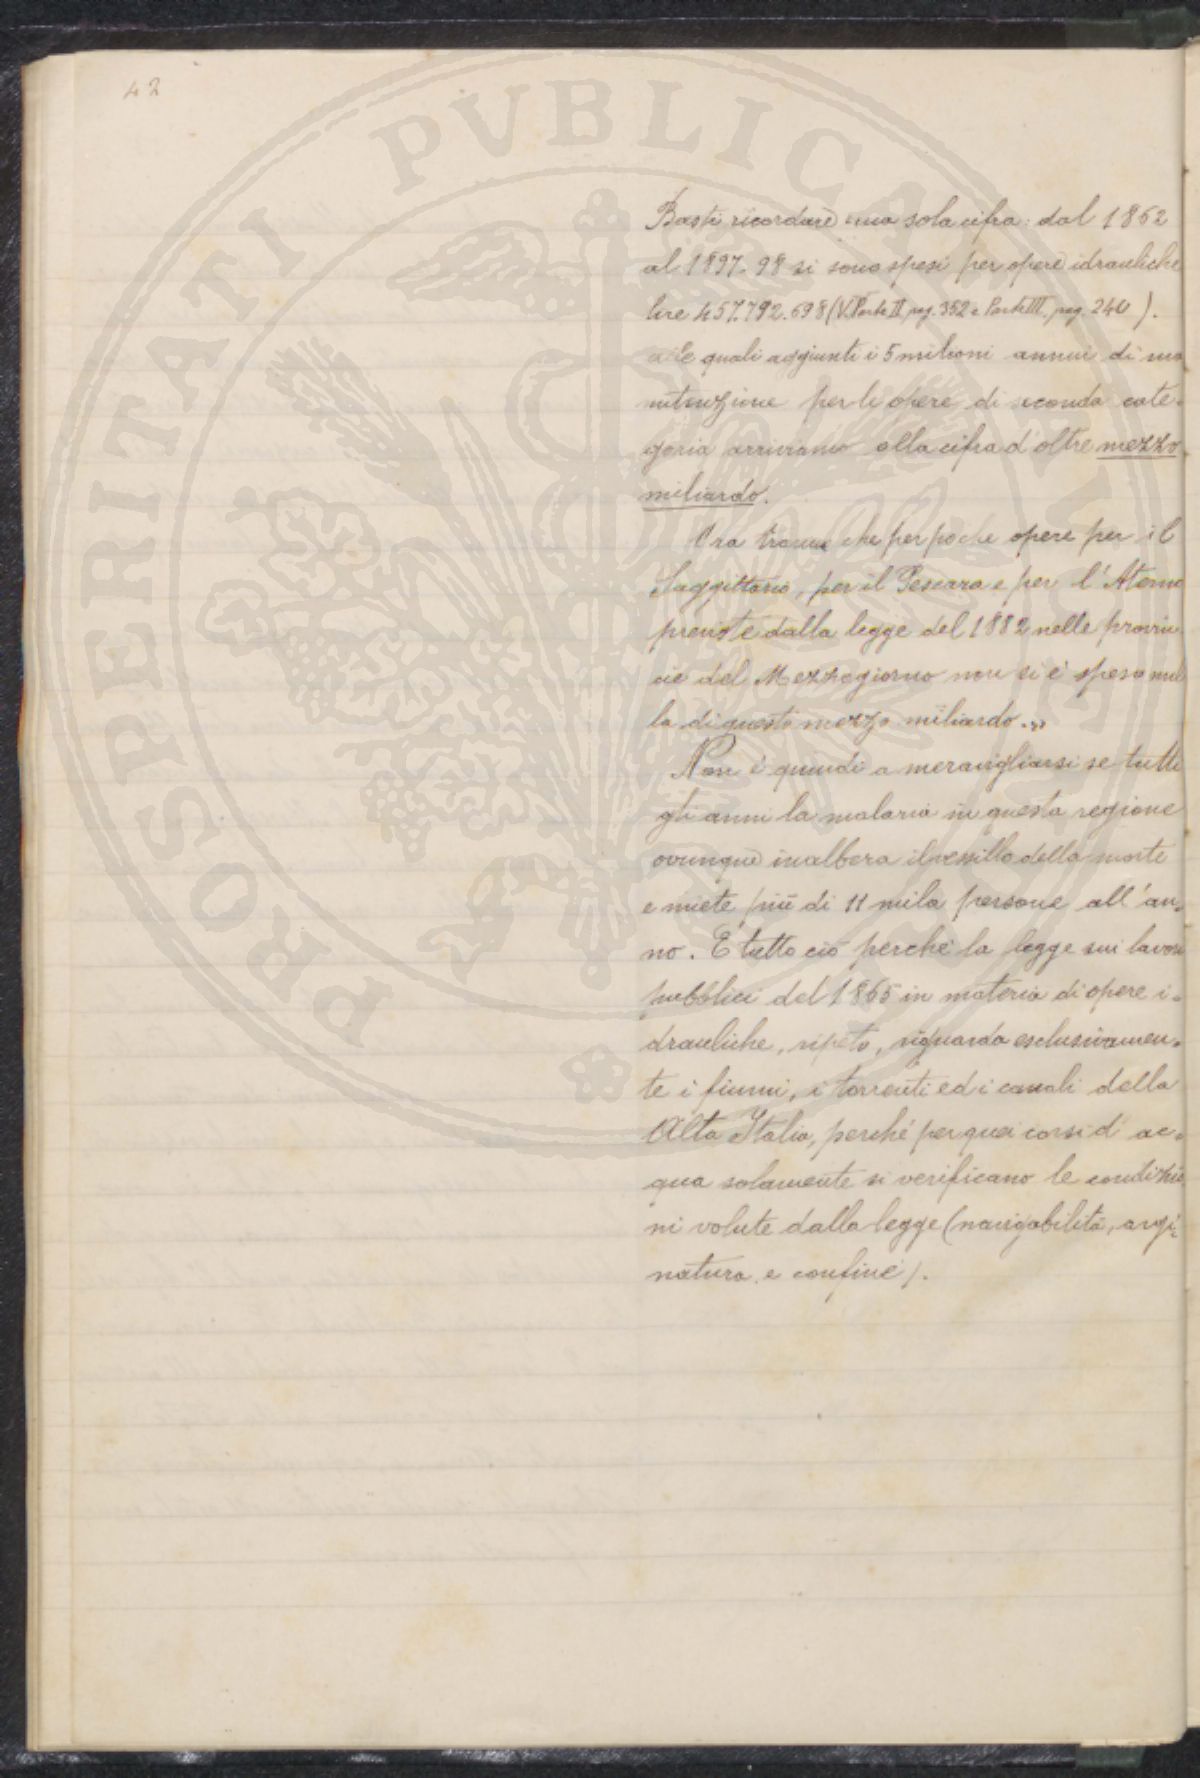 42
PROSPERITATI PVBLICAE
Basti ricordare una sola cifra: dal 1862
al 1897-98 si sono spesi per opere idrauliche
lire 457.792.698 (V. Parte II, pag. 352 e Parte III, pag. 240).
alle quali aggiunti i 5 milioni annui di ma
nutenzione per le opere di seconda cate-
goria arriviamo alla cifra d'oltre mezzo
miliardo.
Ora tranne che per poche opere per il
Saggittario, per il Pescara e per l'Aterno
previste dalla legge del 1882 nelle provin
cie del Mezzogiorno non si è speso nul
la di questo mezzo miliardo.„
Non è quindi a meravigliarsi se tutti
gli anni la malaria in questa regione
ovunque inalbera il vessillo della morte
e miete più di 11 mila persone all'an-
no. E tutto ciò perché la legge sui lavori
pubblici del 1865 in materia di opere i-
drauliche, ripeto, riguarda esclusivamen-
te i fiumi, i torrenti ed i canali della
Alta Italia, perché per quei corsi d'ac-
qua solamente si verificano le condizio
ni volute dalla legge (navigabilità, argi-
natura e confine).